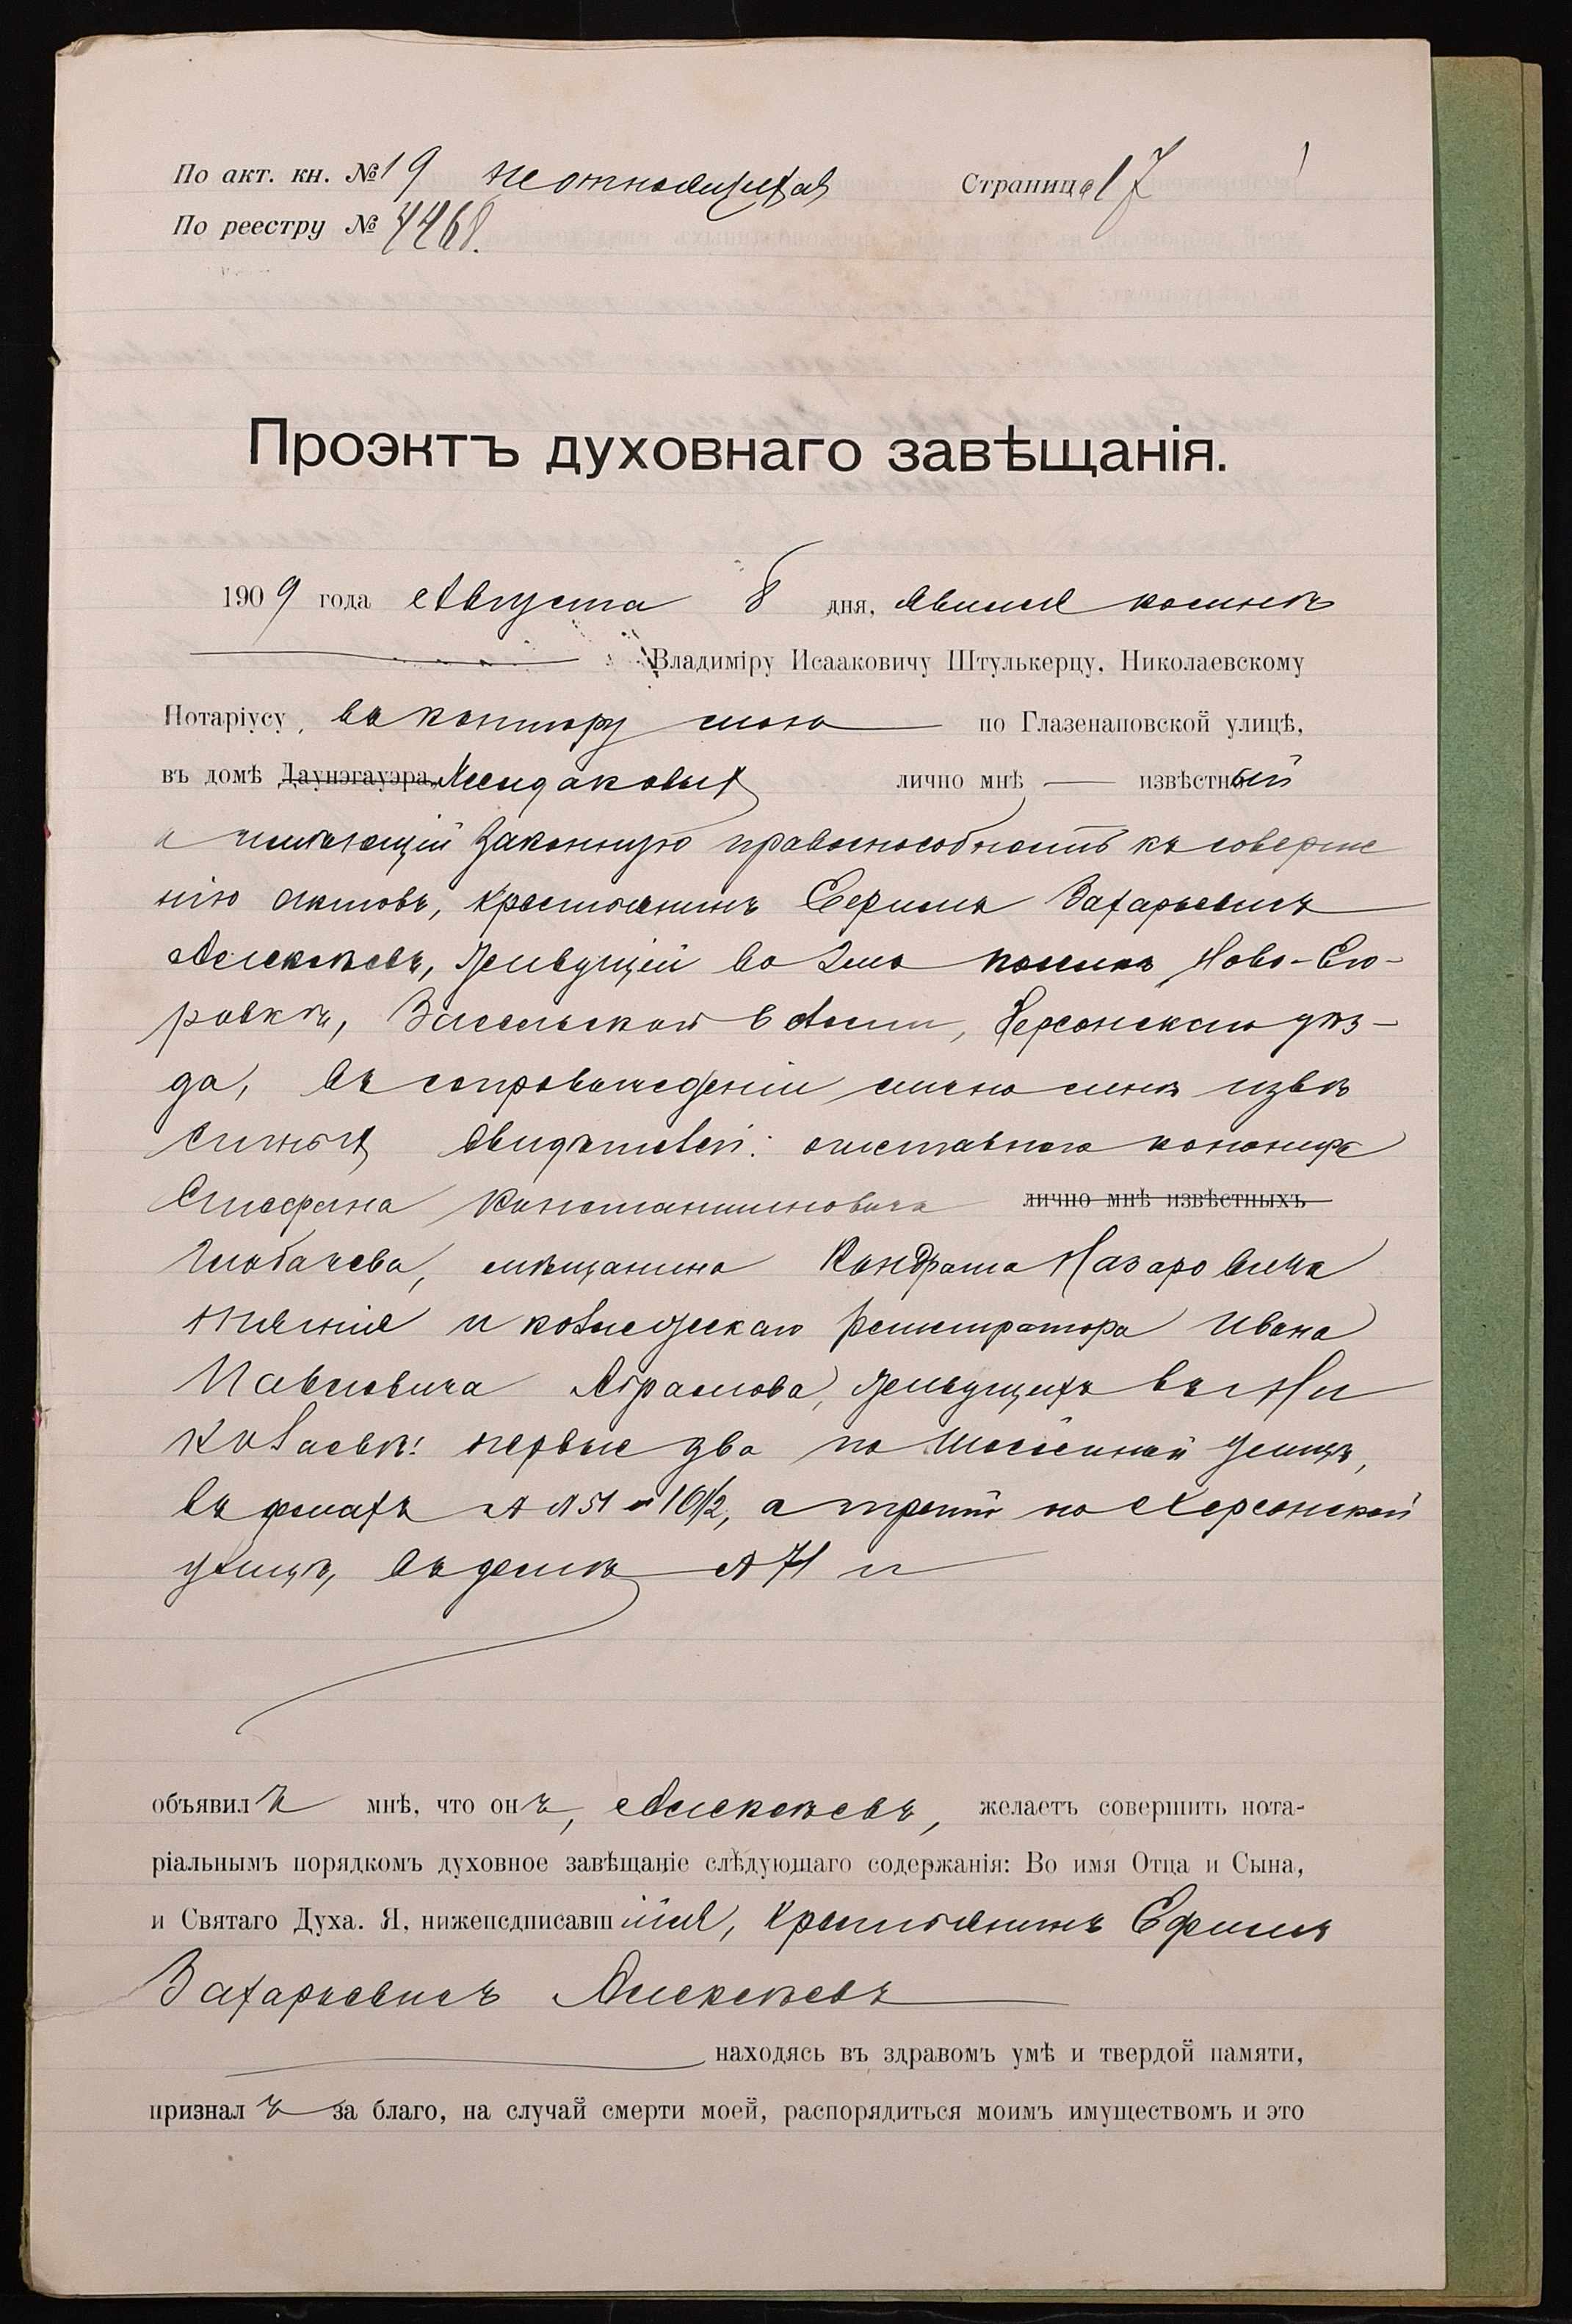 По акт. кн. № 19 Страница 17
По реестру № 4468.
Проэктъ духовнаго завѣщанія.
1909 года Августа 8 дня, явился ко мнѣ
Владиміру Исааковичу Штулькерцу, Николаевскому
Нотаріусу, въ контору мою по Глазенаповской улицѣ,
въ домѣ Даунэгауэра, лично мнѣ извѣстный
и имѣющій законную правоспособность къ соверше
нію актовъ, крестьянинъ Ефимъ Захарьевичъ
Алексѣевъ, живущій въ Ново-Его-
ровкѣ, Засельской волости, Херсонскаго уѣз-
да, въ сопровожденіи лично мнѣ извѣ
стныхъ свидѣтелей: отставного
Стефана Константиновича лично мнѣ извѣстныхъ
мѣщанина Кондрата Назаровича
и коллежскаго регистратора Ивана
Павловича Абрамова, живущихъ въ г. Ни
колаевѣ: первые два по улицѣ,
въ домахъ № № 51 и 10½, а третій по Херсонской
улицѣ, въ домѣ № 71 и
объявилъ мнѣ, что онъ, Алексѣевъ, желаетъ совершить нота-
ріальнымъ порядкомъ духовное завѣщаніе слѣдующаго содержанія: Во имя Отца и Сына,
и Святаго Духа. Я, нижеподписавшійся, крестьянинъ Ефимъ
Захарьевичъ Алексѣевъ
находясь въ здравомъ умѣ и твердой памяти,
призналъ за благо, на случай смерти моей, распорядиться моимъ имуществомъ и это